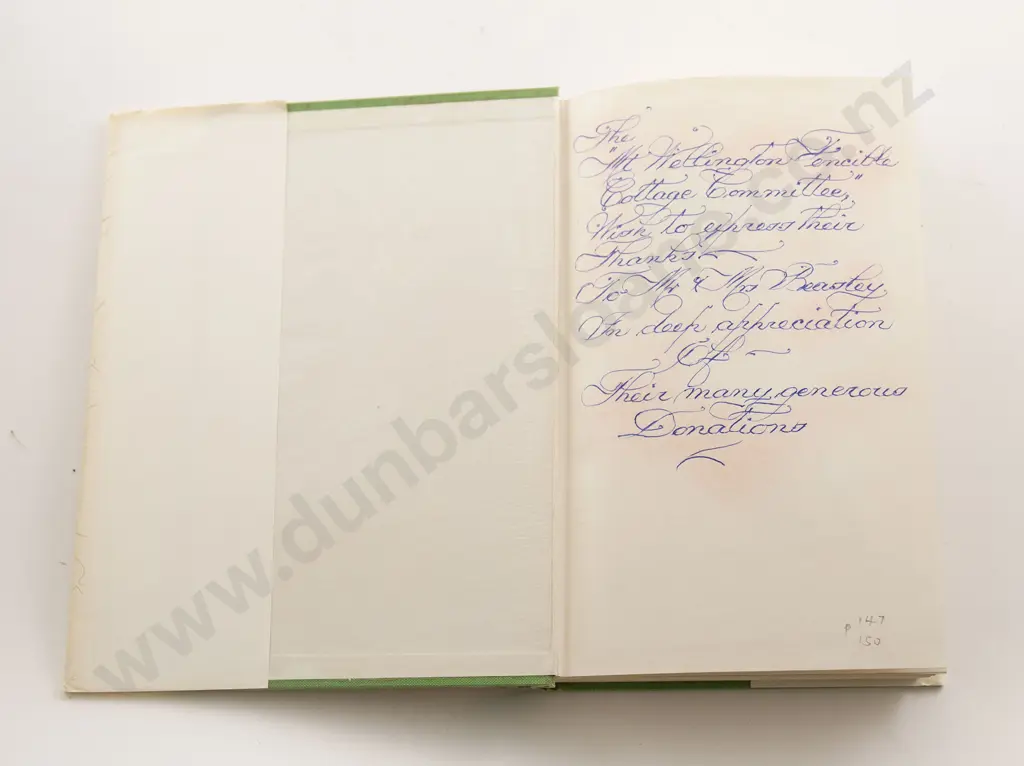 The
"Mt Wellington Fencible
Cottage Committee,"
Wish to express their
Thanks
To Mr & Mrs Beasley
In deep appreciation
Of
Their many generous
Donations
p 147
150
www.dunbarsloane.co.nz